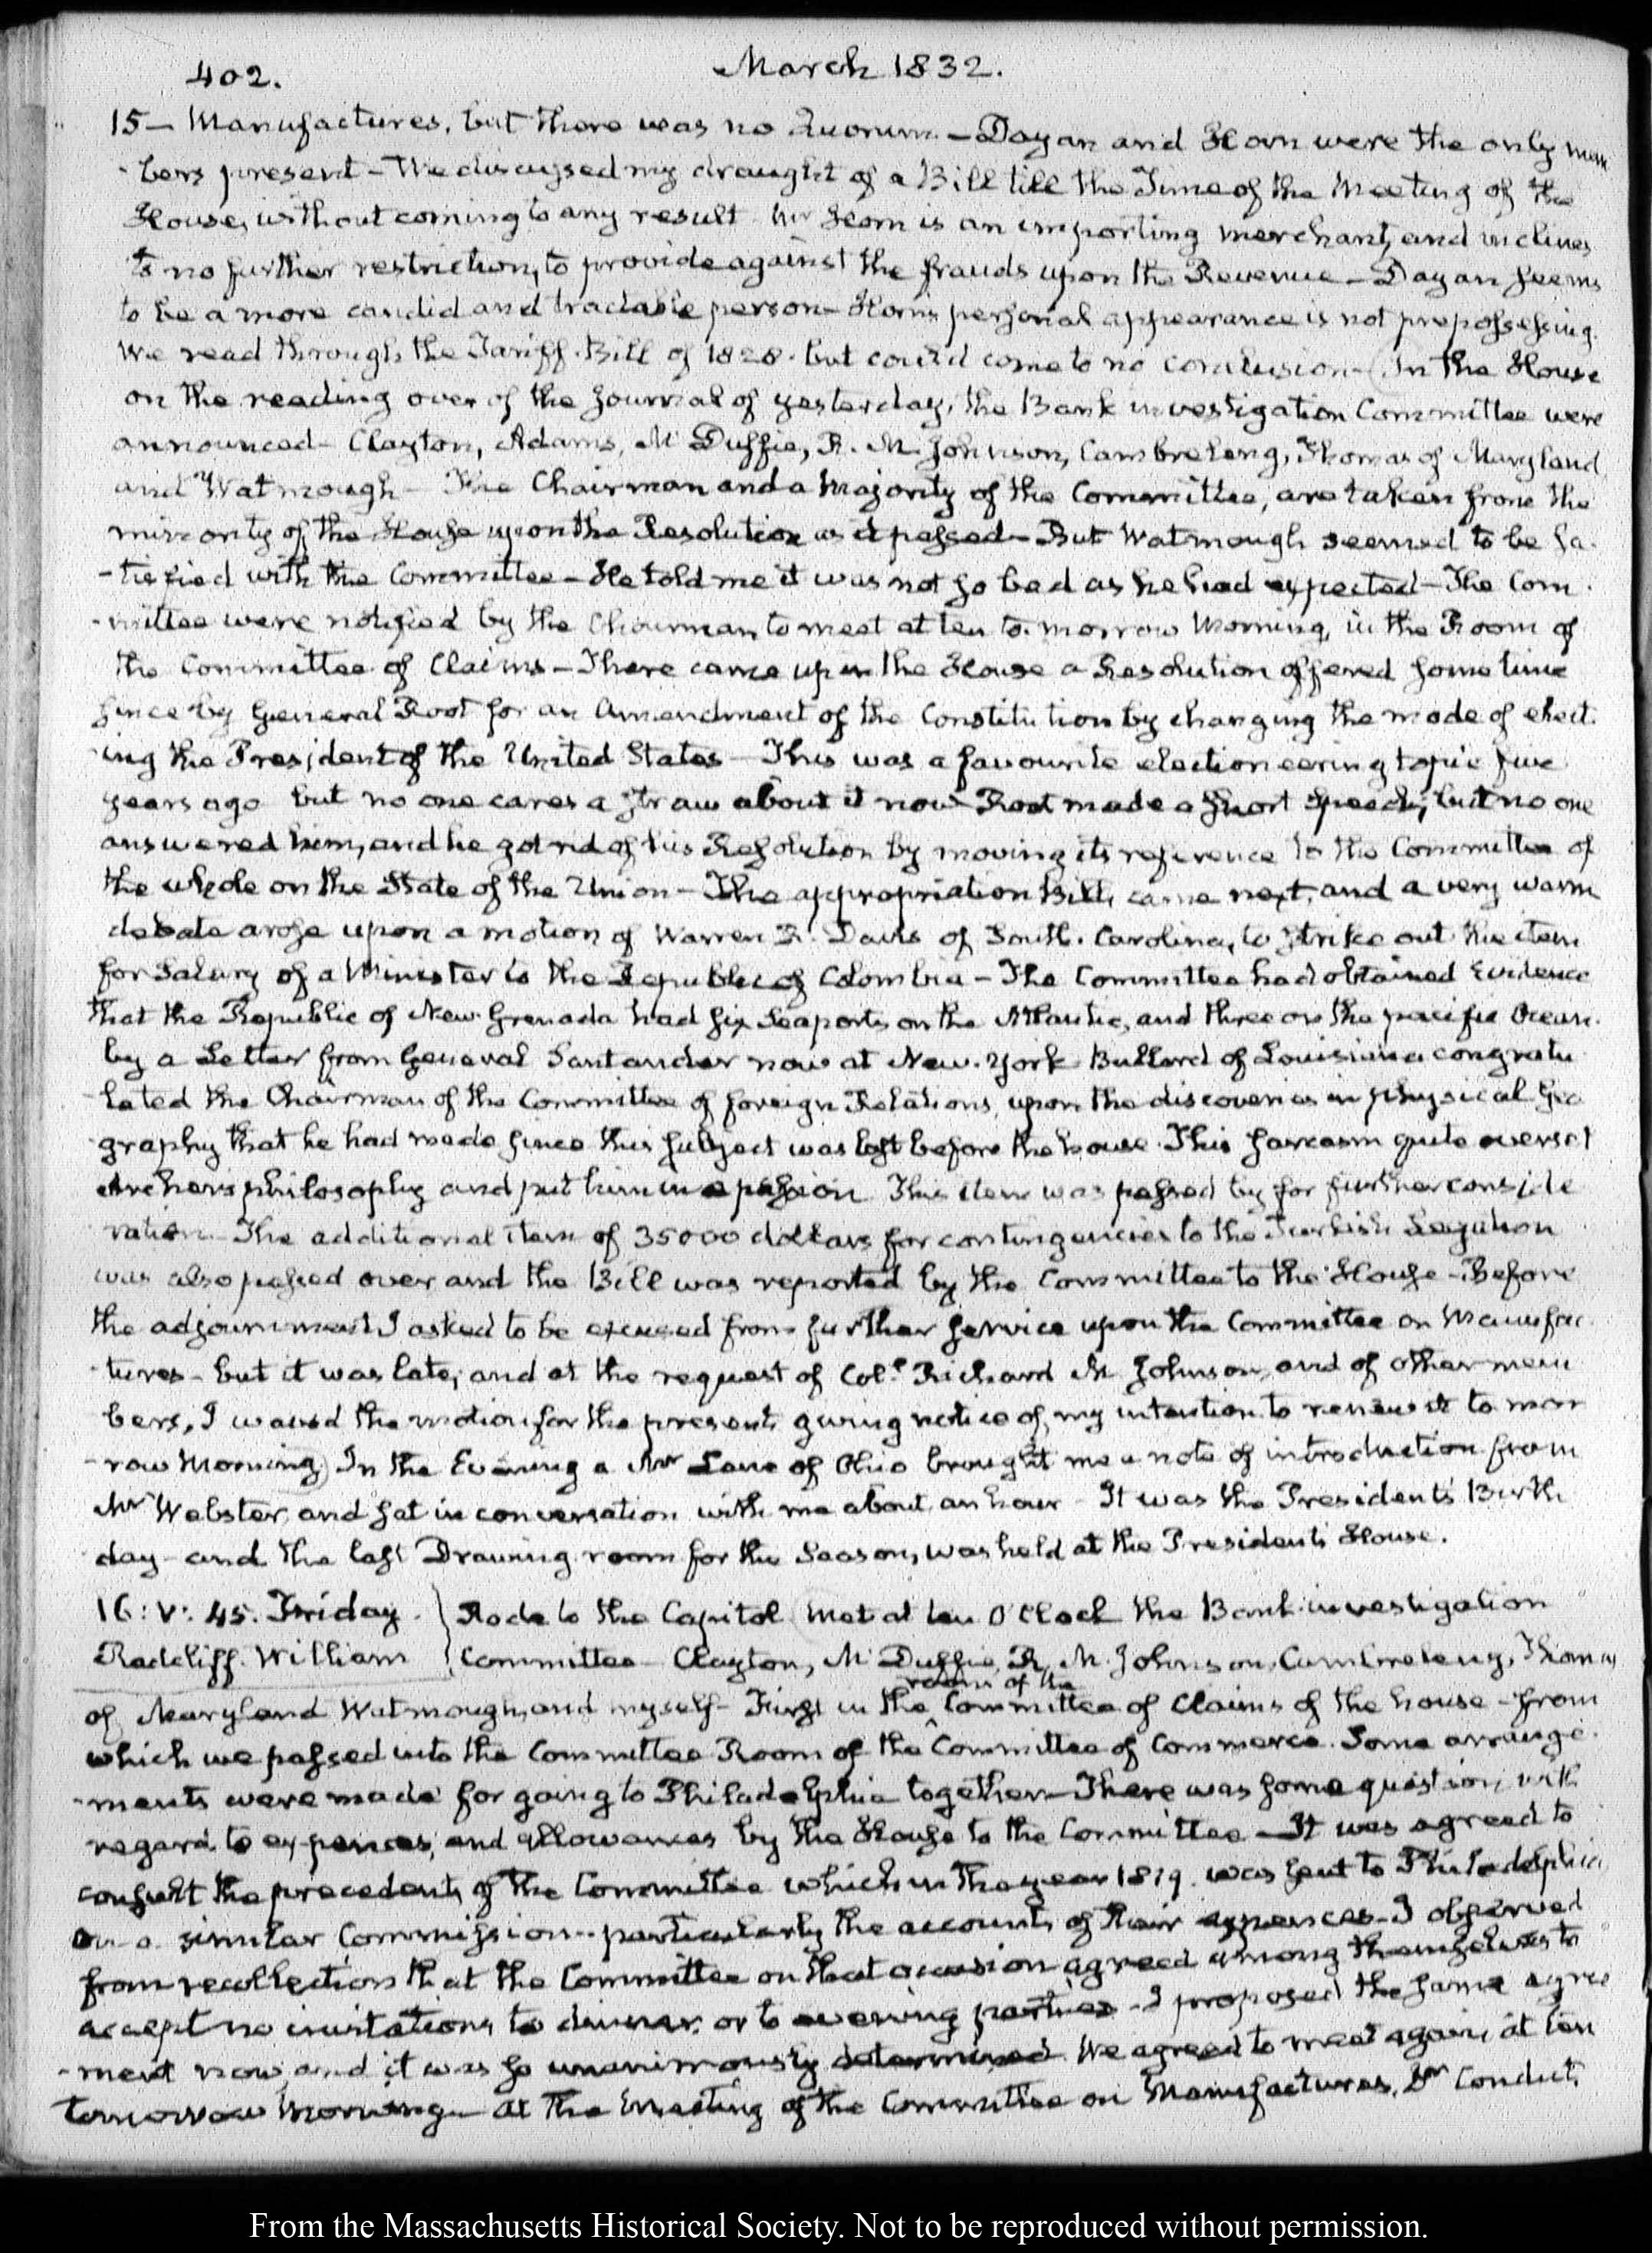 402.
March 1832.
15 — Manufactures, but there was no Quorum — Dayan and Horn were the only mem
bers present — We discussed my draught of a Bill till the Time of the Meeting of the
House, without coming to any result. Mr Horn is an importing merchant, and inclines
to no further restriction, to provide against the frauds upon the Revenue — Dayan seems
to be a more candid and tractable person — Horn's personal appearance is not prepossessing.
We read through the Tariff-Bill of 1828. but could come to no conclusion — In the House
on the reading over of the journal of yesterday, the Bank investigation Committee were
announced — Clayton, Adams, McDuffie, R. M. Johnson, Cambreleng, Thomas of Maryland
and Watmough — The Chairman and a Majority of the Committee, are taken from the
minority of the House upon the Resolution as it passed — But Watmough seemed to be sa-
-tisfied with the Committee — He told me it was not so bad as he had expected — The Com-
-mittee were notified by the Chairman, to meet at ten to-morrow Morning, in the Room of
the Committee of Claims — There came up in the House a Resolution offered some time
since by General Root for an Amendment of the Constitution by changing the mode of elect-
-ing the President of the United States — This was a favourite electioneering topic five
years ago but no one cares a straw about it now — Root made a short speech, but no one
answered him, and he got rid of his Resolution by moving its reference to the Committee of
the whole on the State of the Union — The appropriation Bill, came next, and a very warm
debate arose upon a motion of Warren R. Davis of South-Carolina, to strike out the item
for Salary of a Minister to the Republic of Colombia — The Committee had obtained Evidence
that the Republic of New-Grenada had six Seaports on the Atlantic, and three on the pacific Ocean.
by a Letter from General Santander now at New-York. Bullard of Louisiana congratu
-lated the Chairman of the Committee of foreign Relations, upon the discoveries in physical Geo
-graphy that he had made since this subject was last before the house. This sarcasm quite overset
Archer's philosophy and put him in a passion. This item was passed by for further conside
ration — The additional item of 35000 dollars for contingencies to the Turkish Legation
was also passed over and the Bill was reported by the Committee to the House — Before
the adjournment I asked to be excused from further service upon the Committee on Manufac
-tures — but it was late, and at the request of Coll. Richard M. Johnson, and of other mem
bers, I waived the motion for the present, giving notice of my intention to renew it to mor
-row Morning. In the Evening a Mr Lane of Ohio brought me a note of introduction from
Mr Webster, and sat in conversation with me about an hour — It was the President's Birth
day — and the last Drawing-room for the Season, was held at the President's House.
16: V: 45. Friday.
Radcliff. William
Rode to the Capitol. Met at ten O'Clock the Bank investigation
Committee — Clayton, McDuffie, R. M. Johnson, Cambreleng, Thomas
room of the
of Maryland Watmough, and myself — First in the ^ Committee of Claims of the house — from
which we passed into the Committee Room of the Committee of Commerce. Some arrange-
-ments were made for going to Philadelphia together — There was some question, with
regard to expences, and allowances by the House to the Committee — It was agreed to
consult the precedents of the Committee which in the year 1819. was sent to Philadelphia
on a similar Commission — particularly the accounts of their expences — I observed
from recollection that the Committee on that occasion agreed among themselves to
accept no invitations to dinner, or to evening parties — I proposed the same agree
-ment now, and it was so unanimously determined. We agreed to meet again, at ten
tomorrow Morning — At the Meeting of the Committee on Manufactures, Dr Condict,
From the Massachusetts Historical Society. Not to be reproduced without permission.